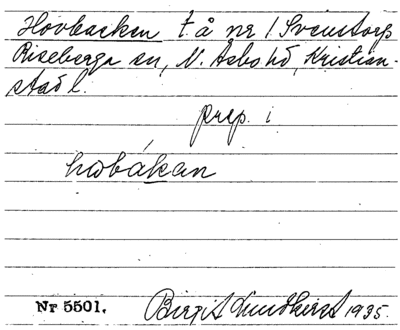 Hovbacken t å nr 1 Svenstorp
Riseberga sn, N. Åsbo hd, Kristian-
stad l.
prep. i
hωbákan
Nr 5501. Birgit Lundkvist 1935.